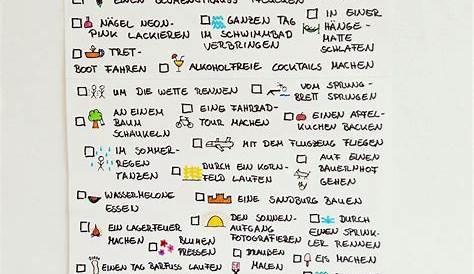 EINEN BLUMENSTRAUSS PFLÜCKEN
NÄGEL NEON-
PINK LACKIEREN
GANZEN TAG
IM SCHWIMMBAD
VERBRINGEN
IN EINER
HÄNGE-
MATTE
SCHLAFEN
TRET-
BOOT FAHREN
ALKOHOLFREIE COCKTAILS MACHEN
UM DIE WETTE RENNEN
VOM SPRUNG-
BRETT SPRINGEN
AN EINEM
BAUM
SCHAUKELN
EINE FAHRRAD-
TOUR MACHEN
EINEN APFEL-
KUCHEN BACKEN
IM SOMMER-
REGEN
TANZEN
MIT DEM FLUGZEUG FLIEGEN
DURCH EIN KORN-
FELD LAUFEN
AUF EINEN
BAUERNHOF
GEHEN
WASSERMELONE
ESSEN
EINE SANDBURG BAUEN
EIN LAGERFEUER
MACHEN
DEN SONNEN-
AUFGANG
FOTOGRAFIEREN
DURCH
EINEN SPRINK-
LER RENNEN
BLUMEN
PRESSEN
DRAUßEN
MALEN
EIS
MACHEN
EINEN TAG BARFUSS LAUFEN